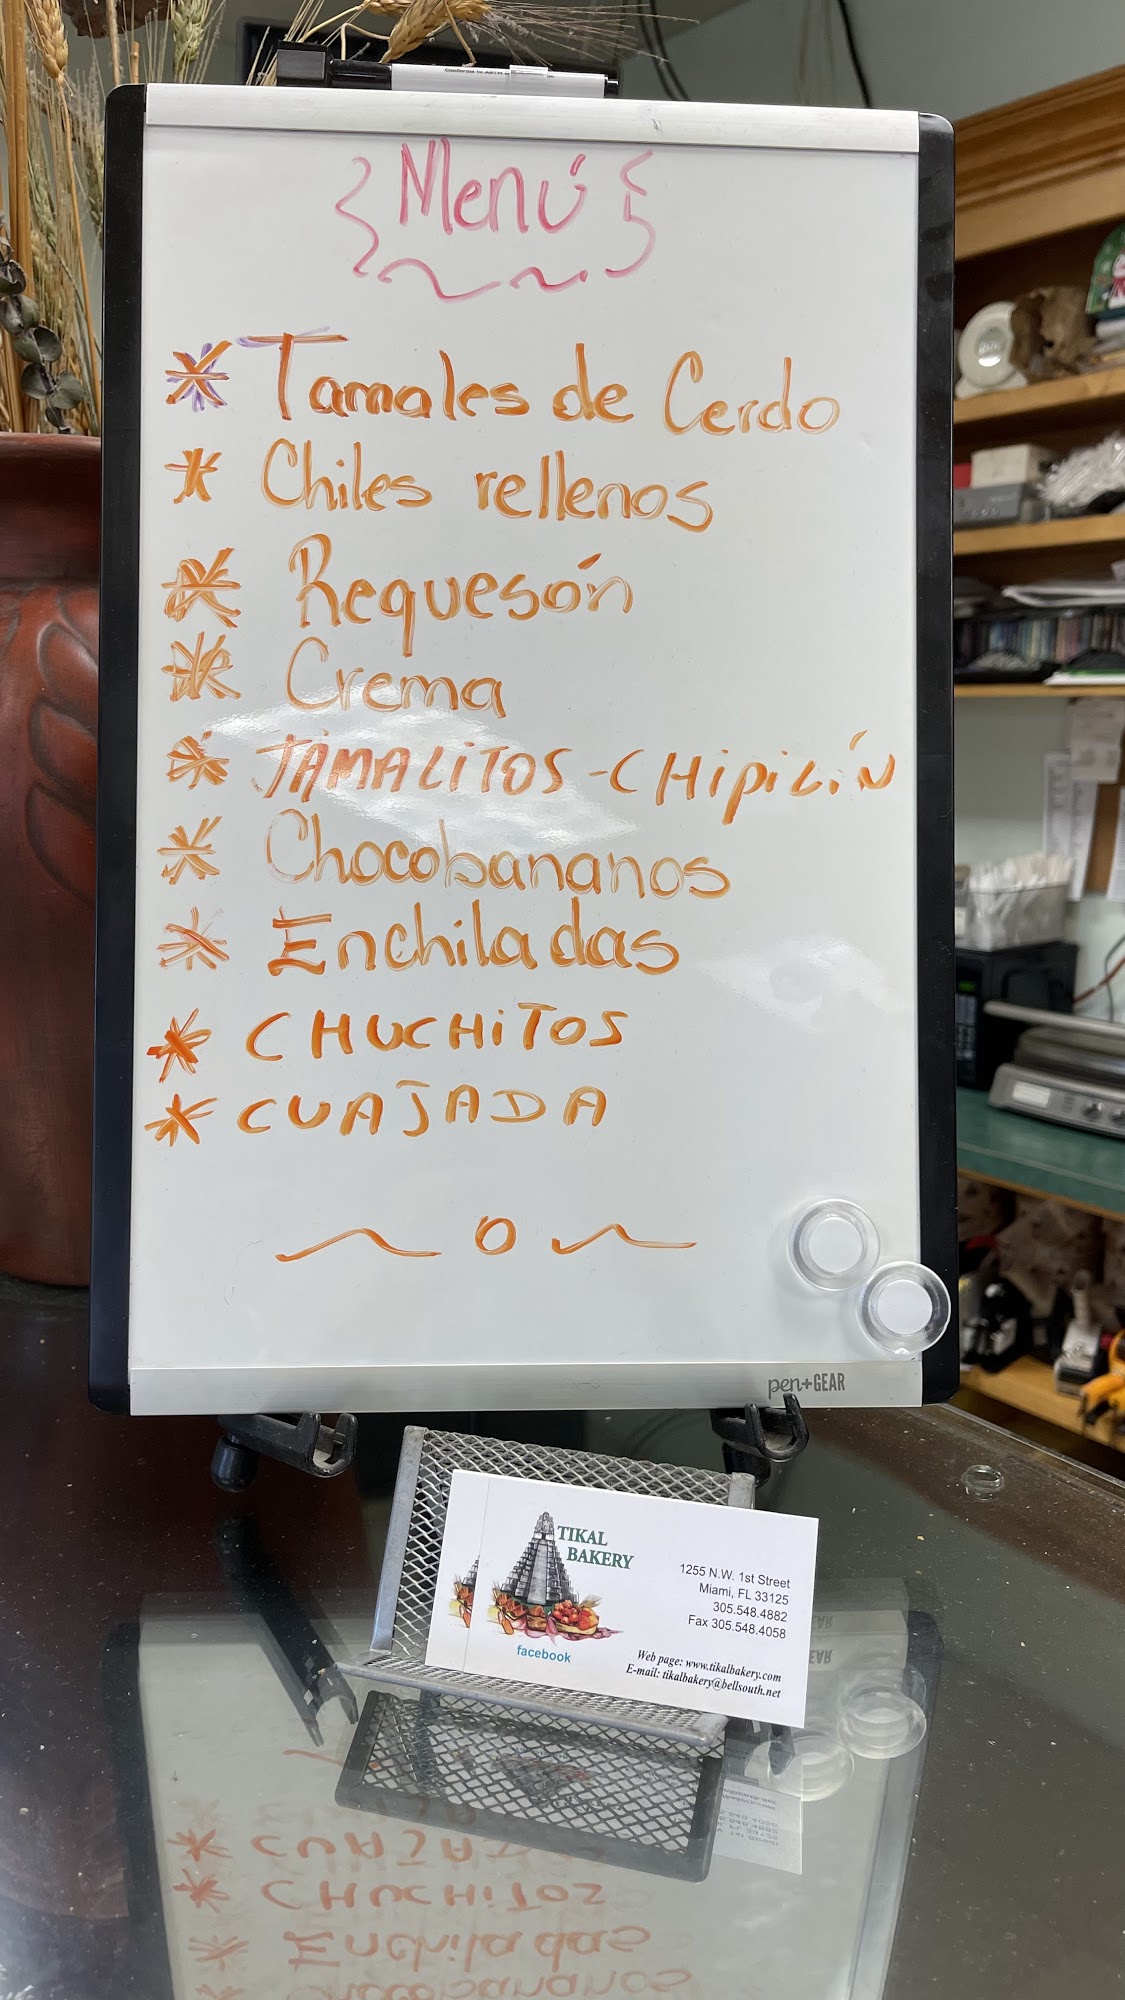 Menú
* Tamales de Cerdo
* Chiles rellenos
* Requesón
* Crema
* TAMALITOS-CHipiLíN
* Chocobananos
* Enchiladas
* CHUCHiTOS
* CUAJADA
~ o ~
pen+GEAR
TIKAL
BAKERY
facebook
1255 N.W. 1st Street
Miami, FL 33125
305.548.4882
Fax 305.548.4058
Web page: www.tikalbakery.com
E-mail: tikalbakery@bellsouth.net